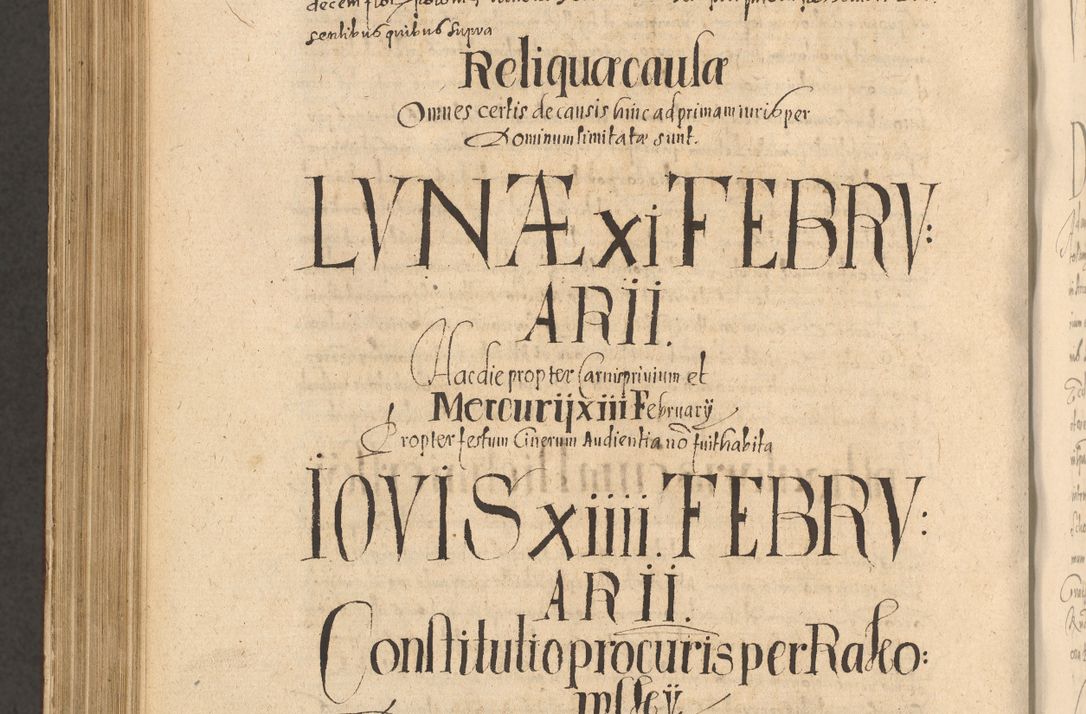 sentibus quibus supra
Reliquæ causæ
Omnes certis de causis hinc ad primam iuris per
Dominum limitatæ sunt.
LVNÆ xi FEBRV:
ARII.
Hac die propter Carnisprivium et
Mercurij xiii February
Propter festum Cinerum Audientia nō fuit habita
IOVIS xiiii. FEBRV:
ARII.
Constitutio procuris per Rako: